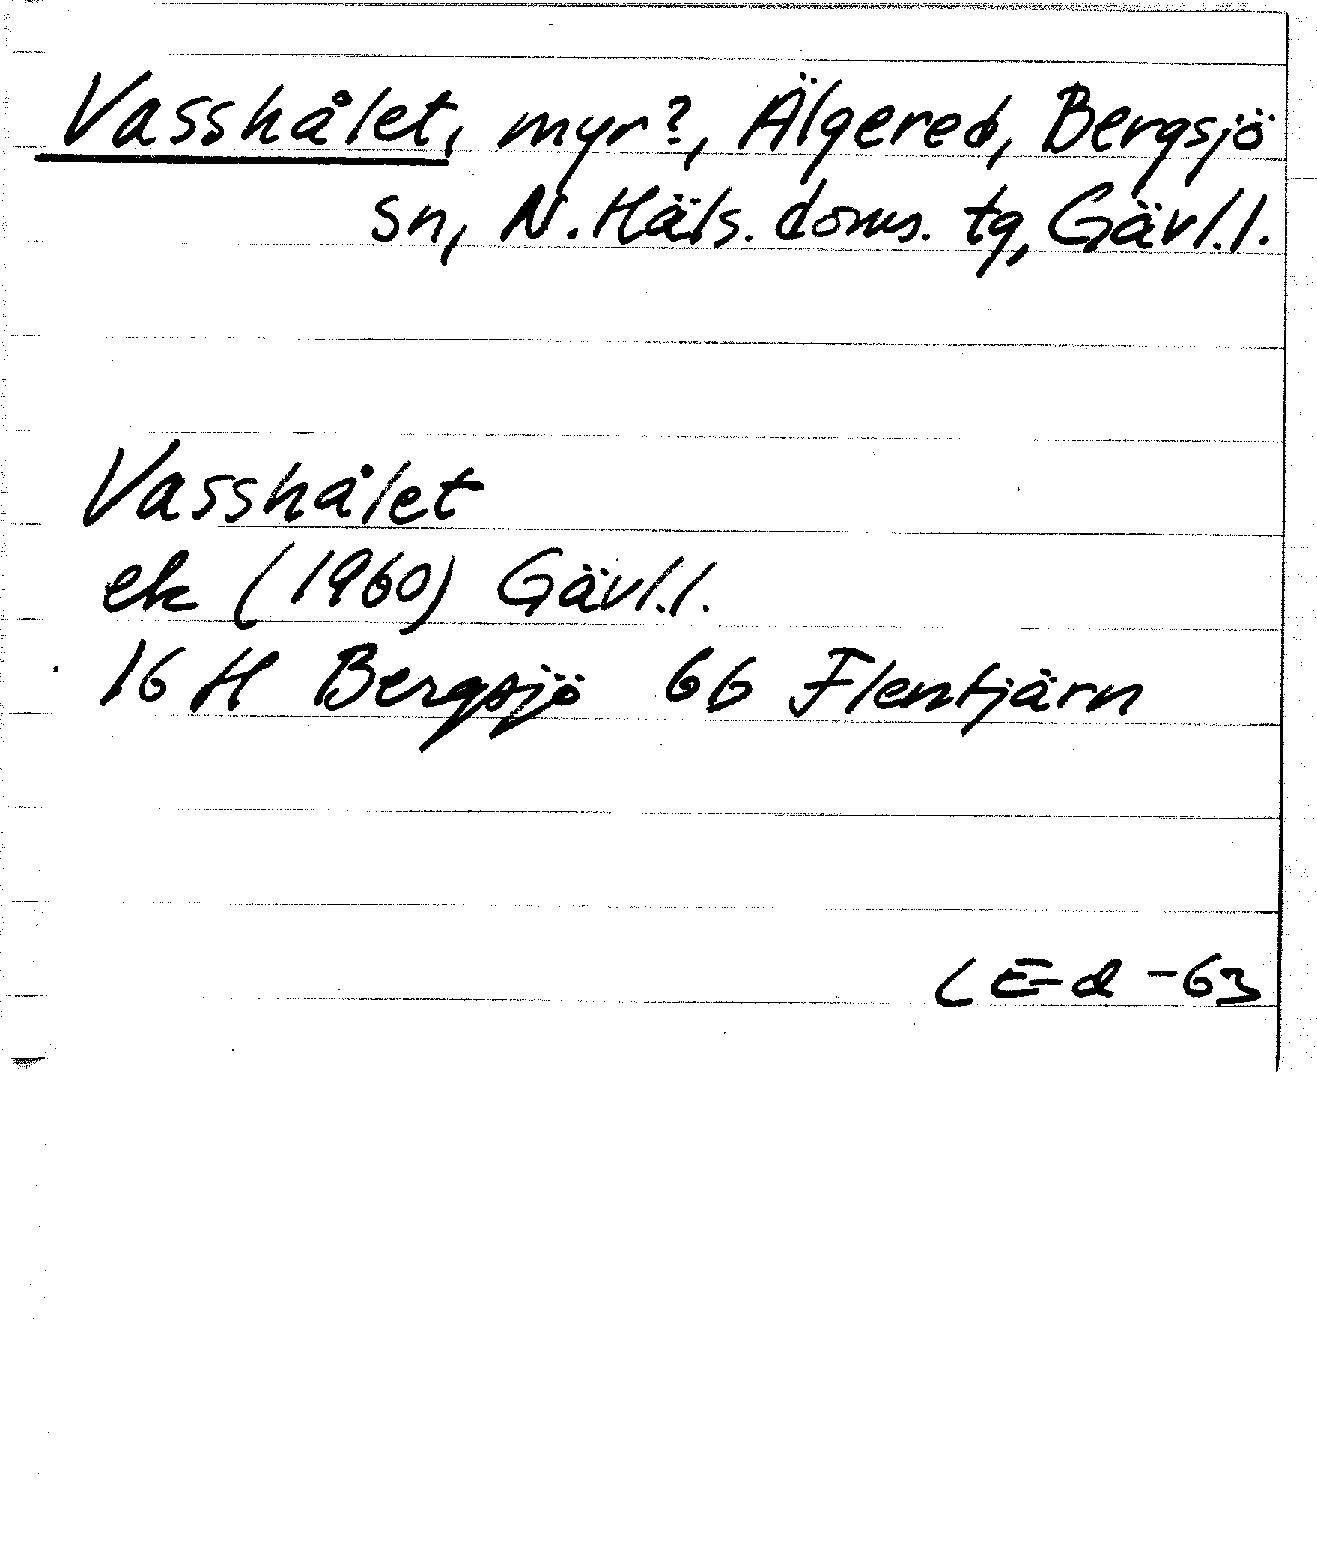 Vasshålet, myr?, Älgered, Bergsjö
sn, N. Häls. doms. tg, Gävl.l.
Vasshålet
ek (1960) Gävl.l.
16 H Bergsjö 6b Flentjärn
CE-d -63